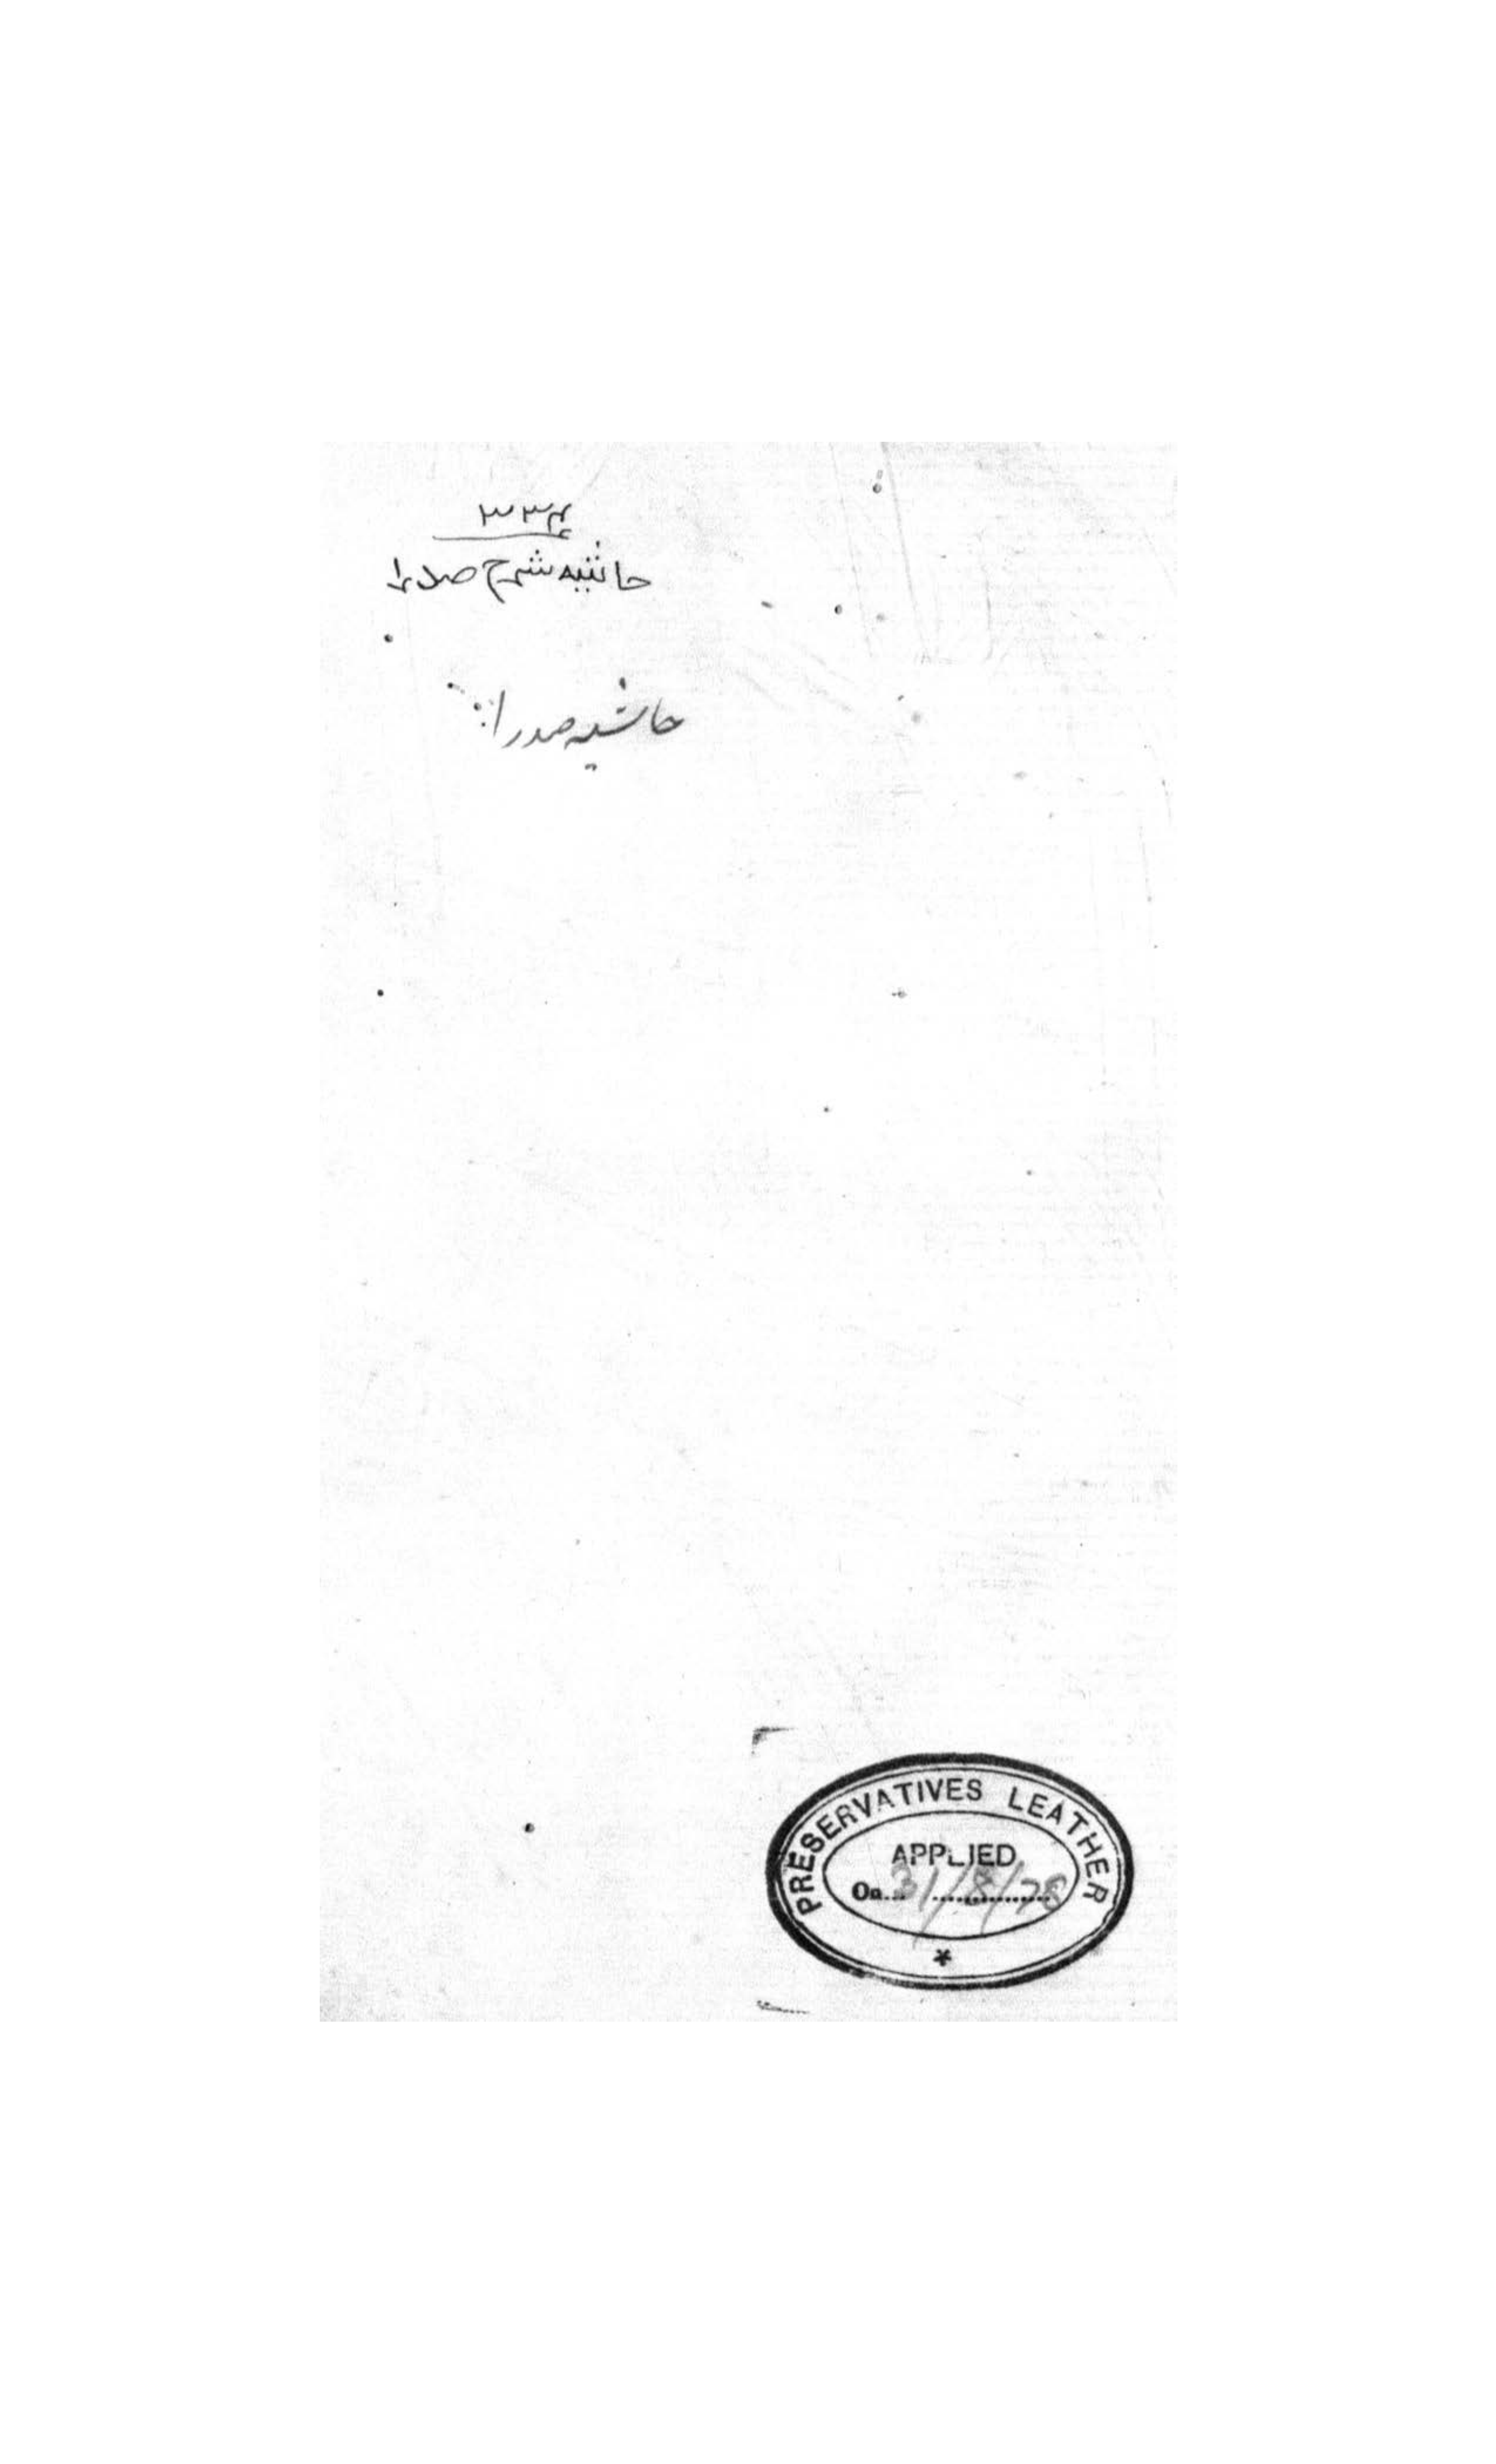 ۳۳۴
حاشیه شرح صدرا
حاشیه صدرا
PRESERVATIVES LEATHER
APPLIED
On 31/8/78